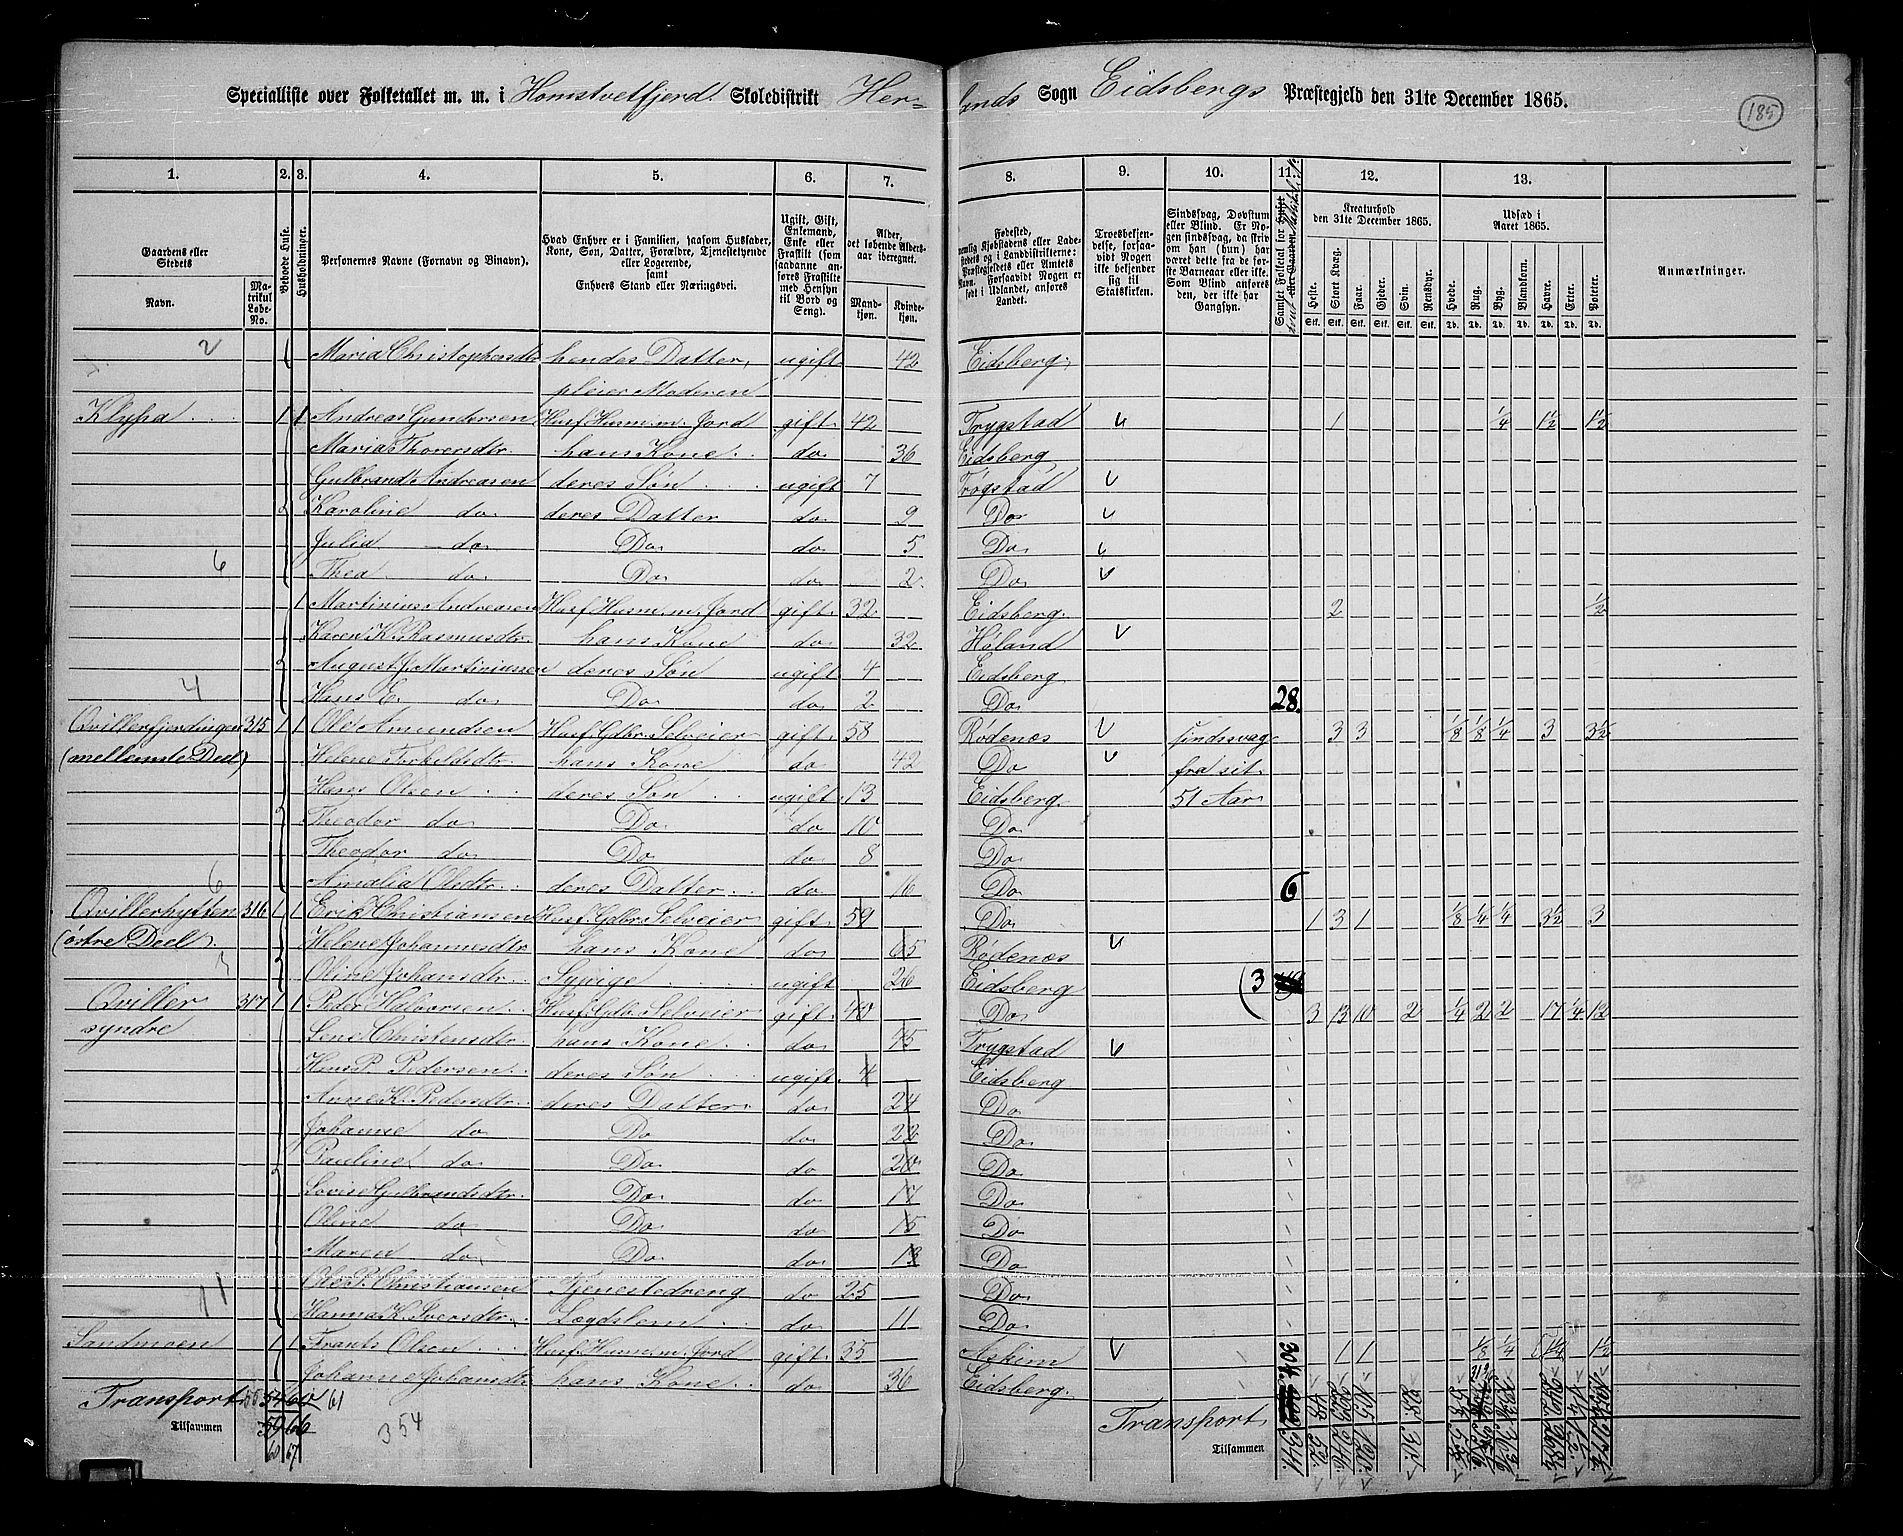 Specialliste over Folketallet m. m. i Homstvetfjerd. Skoledistrikt Her-
lands Sogn Eidsbergs Præstegjeld den 31te December 1865.
185
1. 2. 3. 4. 5. 6. 7. 8. 9. 10. 11. 12. 13.
Gaardens eller Stedets
Navn.
Matrikul Løbe-No.
Beboede Huse.
Husholdninger.
Personernes Navne (Fornavn og Binavn).
Hvad Enhver er i Familien, saasom Husfader, Kone, Søn, Datter, Forældre, Tjenestetyende eller Logerende, samt Enhvers Stand eller Næringsvei.
Ugift, Gift, Enkemand, Enke eller Fraskilt (som saadanne anføres Fraskilte med Hensyn til Bord og Seng).
Alder, det løbende Alders-aar iberegnet.
Mandkjøn.
Kvindekjøn.
Fødested,
Troesbekjendelse, forsaavidt Nogen ikke bekjender sig til Statskirken.
Sindssvag, Døvstum eller Blind. Er Nogen sindssvag, da skriv om han (hun) har været dette fra de første Barneaar eller ikke. Som Blind anføres den, der ikke har Gangsyn.
Samlet Folketal for
Kreaturhold den 31te December 1865.
Heste. Stort Kvæg. Faar. Gjeder. Svin. Rensdyr.
Udsæd i Aaret 1865.
Hvede. Rug. Byg. Blandkorn. Havre. Erter. Poteter.
Stk. Stk. Stk. Stk. Stk. Stk. Td. Td. Td. Td. Td. Td. Td.
Anmærkninger.
2 Maria Christophersdtr hendes Datter, ugift 42 Eidsberg.
pleier Moderen
Klypa 1 1 Andreas Gundersen Husf. Husm. m. Jord gift 42 Trygstad 1 ¼ 1½ 1½
Maria Thorersdtr. hans Kone do 36 Eidsberg
Gulbrand Andreasen deres Søn ugift 7 Trøgstad
Karoline do deres Datter do 9 Do
Julia do Do do 5 Do
6 Thea do Do do 2 Do
1 Martinius Andreasen Husf. Husm. m. Jord gift 32 Eidsberg 2 ½
Karen K. Rasmusdtr. hans Kone do 32 Høland
August J. Martiniussen deres Søn ugift 4 Eidsberg
4 Hans E. do Do do 2 Do 28.
Qvillerfjerdingen 315 1 1 Ole Amundsen Husf. Gdbr. Selveier gift 58 Rødenæs sindssvag 3 3 ⅛ ⅛ ¼ 3 3½
(mellemste Deel) Helene Torkildsdtr. hans Kone do 42 Do fra sit
Hans Olsen deres Søn ugift 13 Eidsberg 51 Aar
Theodor do Do do 10 Do
Theodor do Do do 8 Do
6 Amalia Olsdtr. deres Datter do 16 Do 6
Qvillerhytten 316 1 1 Erik Christiansen Husf. Gdbr. Selveier gift 59 Do 1 3 1 ⅛ ¼ ¼ 3½ 3
(østre Deel. Helene Johannesdtr. hans Kone do 65 Rødenæs
3 Oline Johansdtr. ugift 26 Eidsberg (3
Qviller 317 1 1 Peder Halvorsen Husf. Gdbr. Selveier gift 40 Do 3 13 10 2 ¼ 2 2 17 ¼ 12
syndre Lene Christensdtr. hans Kone do 45 Trygstad
Hans P. Pedersen deres Søn ugift 4 Eidsberg
Anne K. Pedersdtr. deres Datter do 24 Do
Johanne do Do do 22 Do
Pauline do Do do 20 Do
Lovise Gulbrandsdtr. Do do 17 Do
Oline do Do do 15 Do
Maren do Do do 13 Do
11 Ole P. Christiansen Tjenestedreng do 25 Do
Hanna K. Iversdtr. Lægdslem do 11 Do
Sandmoen 1 1 Frants Olsen Husf. Husm. m. Jord gift 35 Askim 1 1 ⅛ ¼ 1½
Johanne Johansdtr hans Kone do 36 Eidsberg.
Transport 54 60 61 Transport
Tilsammen 59 66 354 Tilsammen 341
60 67